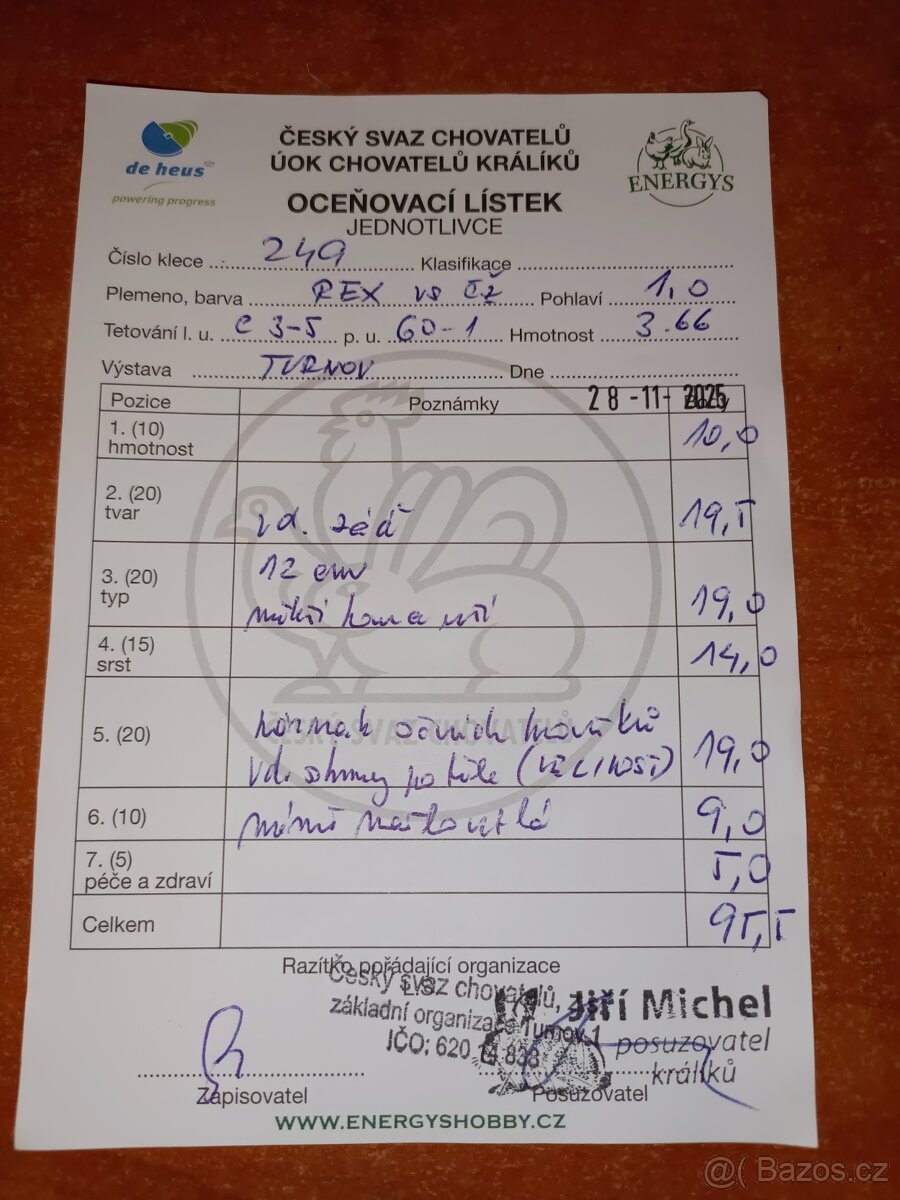 de heus
powering progress
ČESKÝ SVAZ CHOVATELŮ
ÚOK CHOVATELŮ KRÁLÍKŮ
OCEŇOVACÍ LÍSTEK
JEDNOTLIVCE
ENERGYS
Číslo klece 249 Klasifikace
Plemeno, barva REX vs čž Pohlaví 1,0
Tetování l. u. C 3-5 p. u. 60-1 Hmotnost 3.66
Výstava TURNOV Dne
28-11-2025
Pozice Poznámky Body
1. (10) hmotnost 10,0
2. (20) tvar vd. záď 19,5
3. (20) typ 12 cm 19,0
4. (15) srst 14,0
ČESKÝ SVAZ CHOVATELŮ
5. (20) očních kroužků 19,0
vd. (VELIKOST)
6. (10) 9,0
7. (5) péče a zdraví 5,0
Celkem 95,5
Razítko pořádající organizace
Český svaz chovatelů,
základní organizace Turnov 1
IČO: 620 14 838
Jiří Michel
posuzovatel
králíků
Zapisovatel Posuzovatel
WWW.ENERGYSHOBBY.CZ
@( Bazos.cz